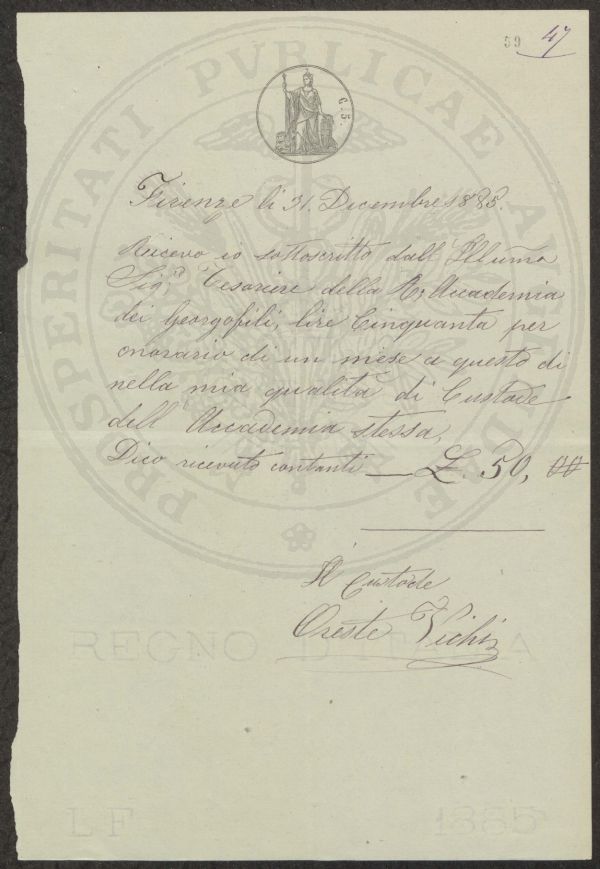 59 47
G. 5.
PROSPERITATI PVBLICAE AVGENDAE
Firenze li 31. Dicembre 1885.
Ricevo io sottoscritto dall' Illumo
Sigr. Tesoriere della R. Accademia
dei Georgofili, lire Cinquanta per
onorario di un mese a questo di
nella mia qualità di Custode
dell' Accademia stessa,
Dico ricevuto contanti — £. 50, 00
Il Custode
Oreste Vichi
REGNO D'ITALIA
LF 1885